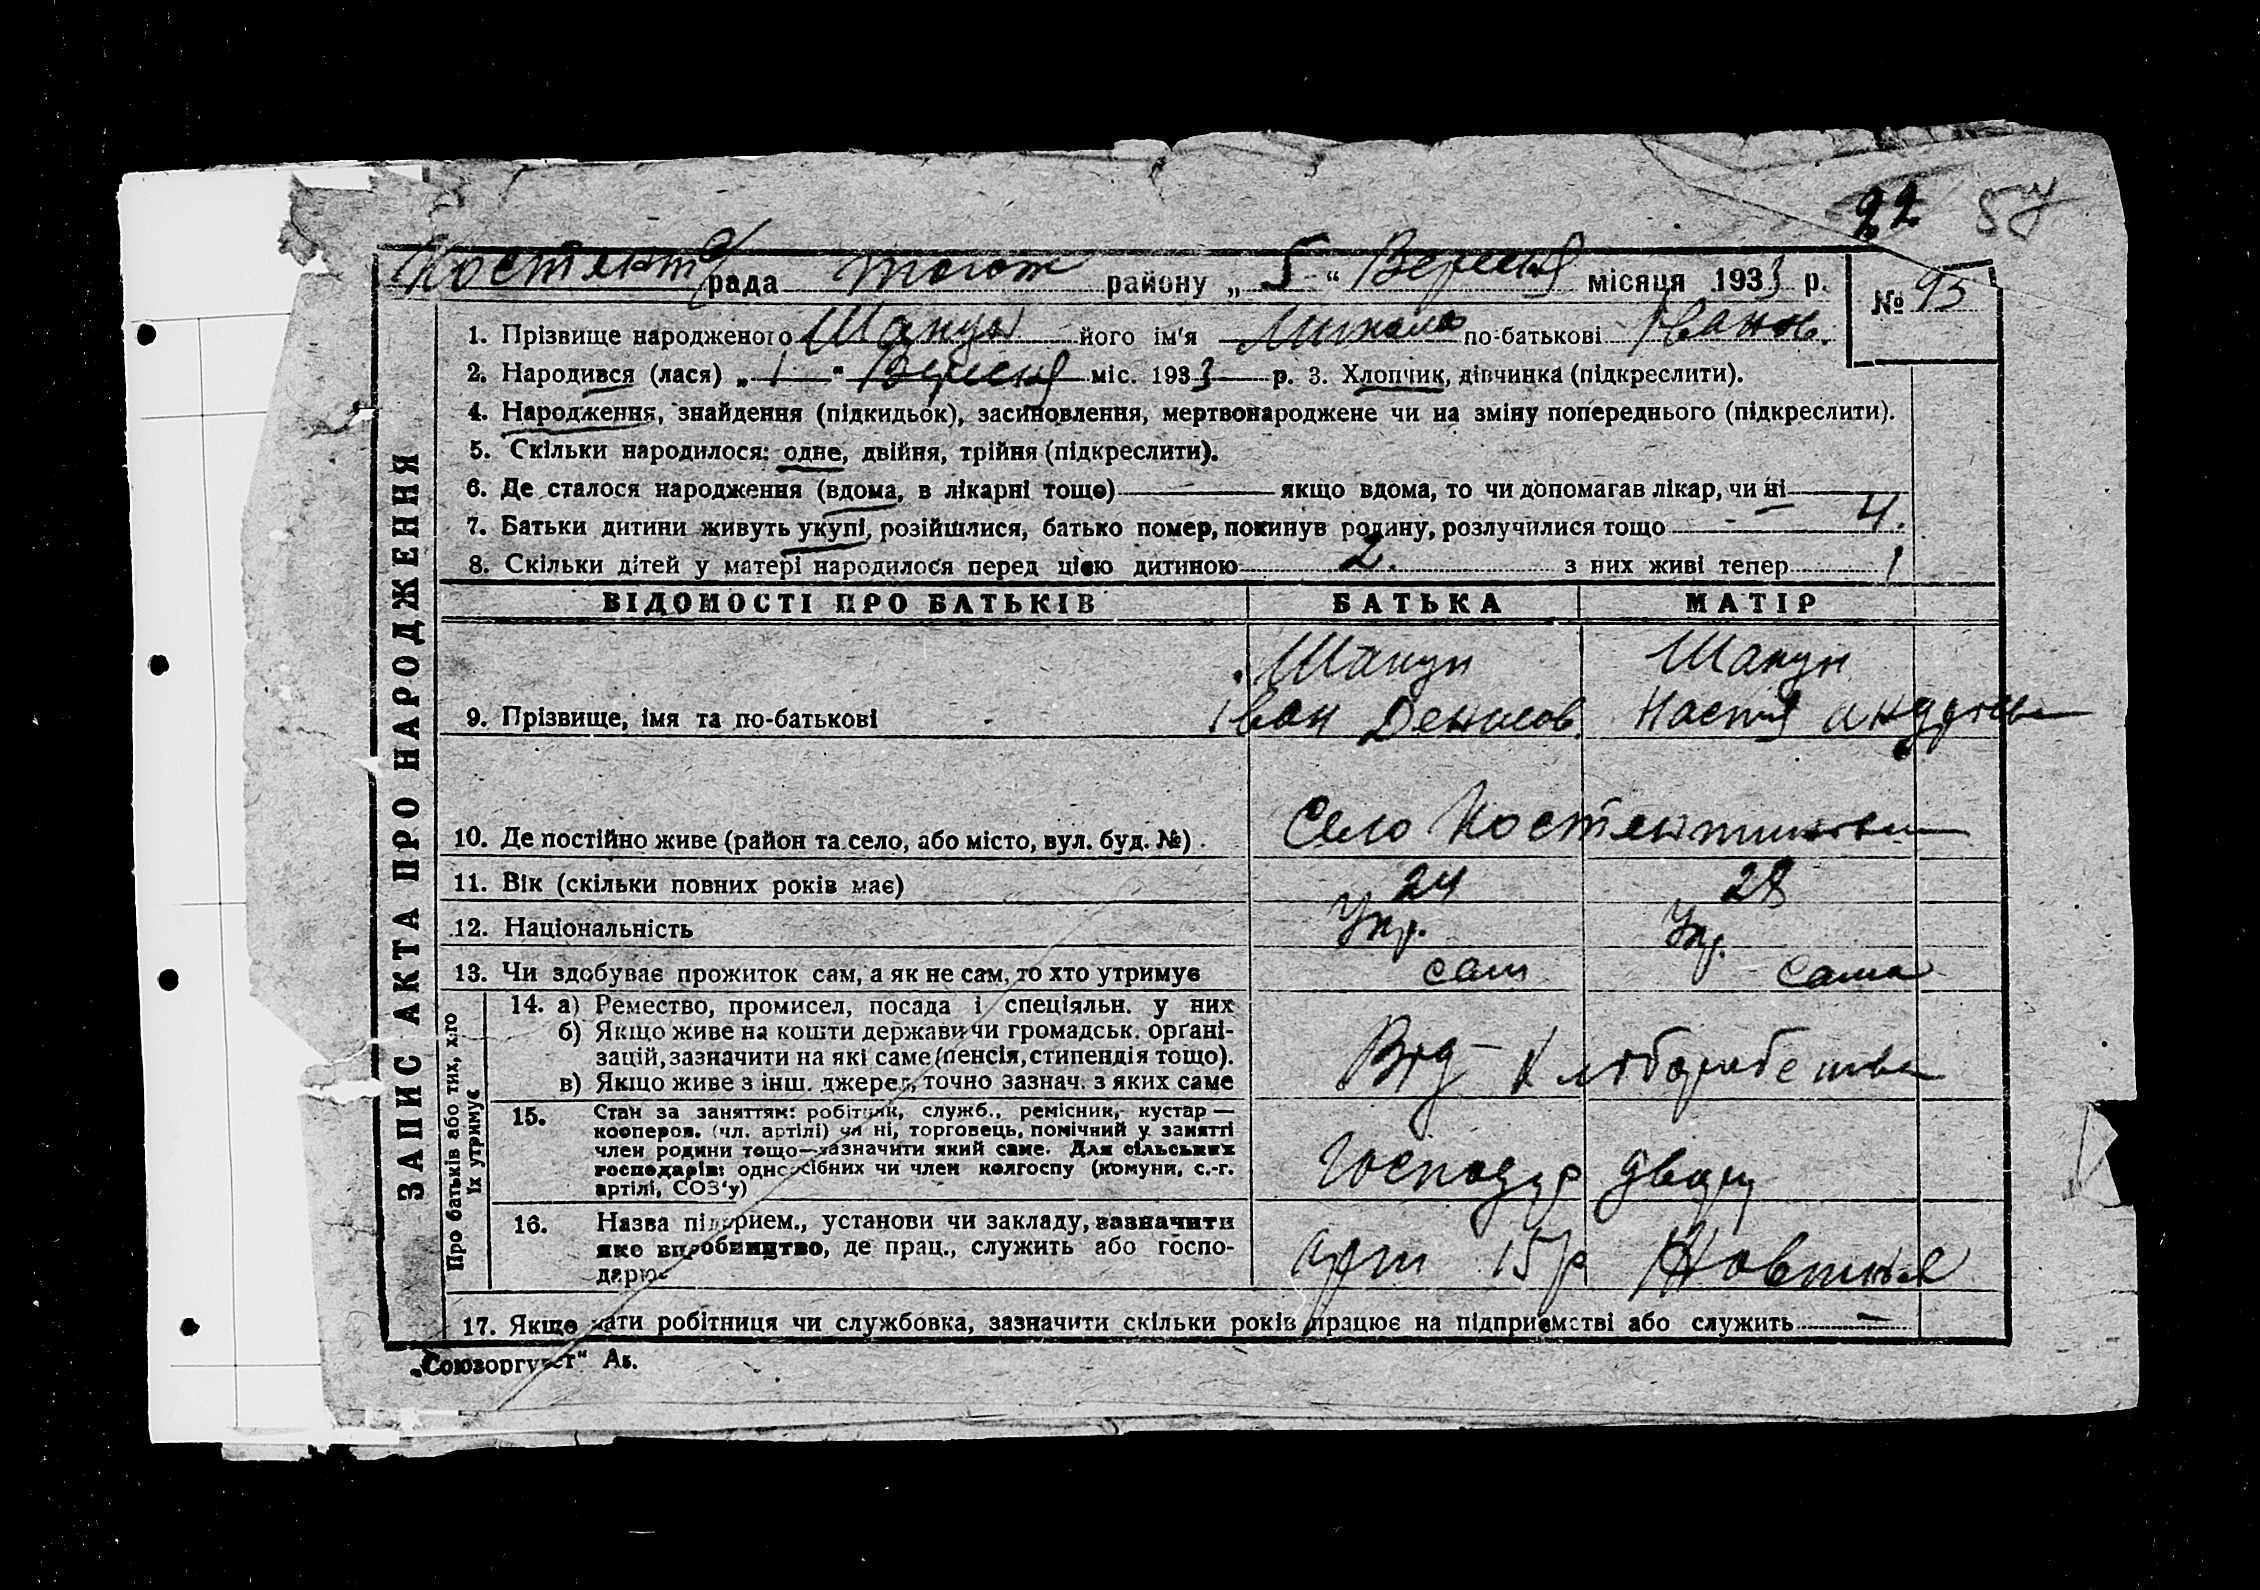 22 57
рада району „ 5 “ Вересня місяця 1933 р.
№ 95
1. Прізвище народженого Шакун його ім'я Михало по-батькові Іванов.
2. Народився (лася) „ 1 “ Вересня міс. 1933 р. 3. Хлопчик, дівчинка (підкреслити).
4. Народження, знайдення (підкидьок), засиновлення, мертвонароджене чи на зміну попереднього (підкреслити).
5. Скільки народилося: одне, двійня, трійня (підкреслити).
6. Де сталося народження (вдома, в лікарні тощо) якщо вдома, то чи допомагав лікар, чи ні
7. Батьки дитини живуть укупі, розійшлися, батько помер, покинув родину, розлучилися тощо 4.
8. Скільки дітей у матері народилося перед цією дитиною 2. з них живі тепер 1
ЗАПИС АКТА ПРО НАРОДЖЕННЯ
ВІДОМОСТІ ПРО БАТЬКІВ БАТЬКА МАТІР
Шакун Шакун
9. Прізвище, імя та по-батькові Іван Денисов. Настя
10. Де постійно живе (район та село, або місто, вул. буд. №) . Село
11. Вік (скільки повних років має) 24 28
12. Національність Укр. Укр.
13. Чи здобуває прожиток сам, а як не сам, то хто утримує сам сама
Про батьків або тих, хто їх утримує
14. а) Ремество, промисел, посада і спеціяльн. у них
б) Якщо живе на кошти держави чи громадськ. орґані-
зацій, зазначити на які саме (пенсія, стипендія тощо).
в) Якщо живе з інш. джерел, точно зазнач. з яких саме
15. Стан за заняттям: робітник, служб., ремісник, кустар —
кооперов. (чл. артілі) чи ні, торговець, помічний у занятті
член родини тощо—зазначити який саме. Для сільських
господарів: одноосібних чи член колгоспу (комуни, с.-г.
артілі, СОЗ'у)
Господар двору
16. Назва підприєм., установи чи закладу, зазначити
яке виробництво, де прац., служить або госпо-
дарює
арт 15 р Жовтня
17. Якщо мати робітниця чи службовка, зазначити скільки років працює на підприємстві або служить —